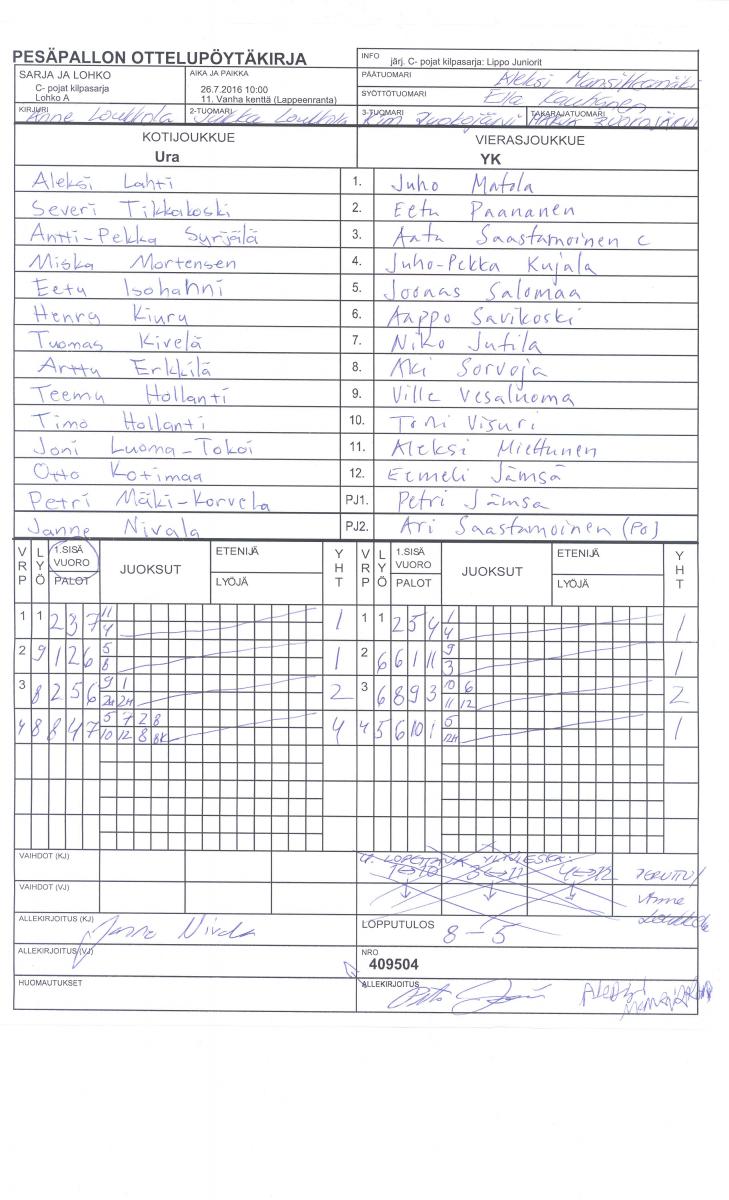 PESÄPALLON OTTELUPÖYTÄKIRJA
INFO järj. C- pojat kilpasarja: Lippo Juniorit
SARJA JA LOHKO
C- pojat kilpasarja
Lohko A
AIKA JA PAIKKA
26.7.2016 10:00
11. Vanha kenttä (Lappeenranta)
PÄÄTUOMARI Aleksi
SYÖTTÖTUOMARI Kauhanen
KIRJURI Anne Loukkola
2-TUOMARI Jukka Loukkola
3-TUOMARI Kim
TAKARAJATUOMARI
KOTIJOUKKUE
Ura
VIERASJOUKKUE
YK
Aleksi Lahti 1. Juho Matola
Severi Tikkakoski 2. Eetu Paananen
Antti-Pekka Syrjälä 3. Aatu Saastamoinen C
Miska Mortensen 4. Juho-Pekka Kujala
Eetu Isohanni 5. Joonas Salomaa
Henry Kiuru 6. Aappo Savikoski
Tuomas Kivelä 7. Niko Jutila
Arttu Erkkilä 8. Aki Sorvoja
Teemu Hollanti 9. Ville Vesaluoma
Timo Hollanti 10. Toni Visuri
Joni Luoma-Tokoi 11. Aleksi Miettunen
Otto Kotimaa 12. Eemeli Jämsä
Petri Mäki-Korvela PJ1. Petri Jämsä
Janne Nivala PJ2. Ari Saastamoinen (PO)
VRP LYÖ 1.SISÄ VUORO PALOT JUOKSUT ETENIJÄ LYÖJÄ YHT VRP LYÖ 1.SISÄ VUORO PALOT JUOKSUT ETENIJÄ LYÖJÄ YHT
1 1 2 3 7 11 1 1 1 2 5 4 1 1
4 4
2 9 1 2 6 5 1 2 6 6 1 11 9 1
8 3
3 8 2 5 6 9 1 2 3 6 8 9 3 10 6 2
2H 2H 11 12
4 8 8 4 7 5 7 2 8 4 4 5 6 10 1 5 1
10 12 8 8K 12H
VAIHDOT (KJ)
1⇔10 4⇔12 PERUTTU/
VAIHDOT (VJ)
Anne
Loukkola
ALLEKIRJOITUS (KJ) Janne Nivala
LOPPUTULOS 8-5
ALLEKIRJOITUS (VJ)
NRO
409504
HUOMAUTUKSET
ALLEKIRJOITUS